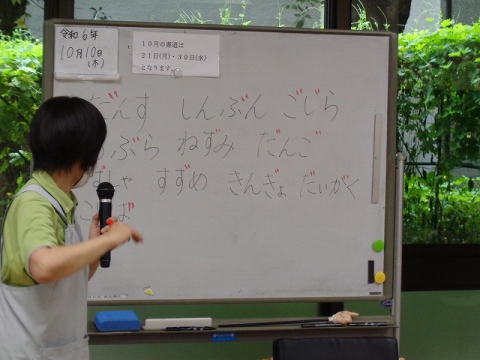 令和6年
10月10日
(木)
10月の書道は
21日(月)・30日(水)
となります。
だんす しんぶん ごじら
ぶら ねずみ だんご
すずめ きんぎょ だいがく